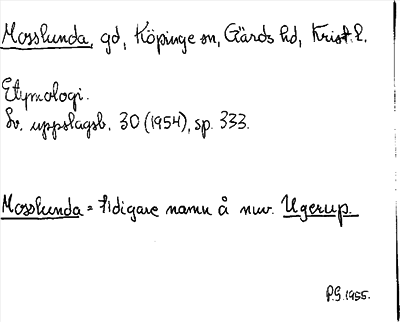 Mosslunda, gd, Köpinge sn, Gärds hd, Krist. l.
Etymologi.
Sv. uppslagsb. 30 (1954), sp. 333.
Mosslunda = tidigare namn å nuv. Ugerup.
P.G. 1955.